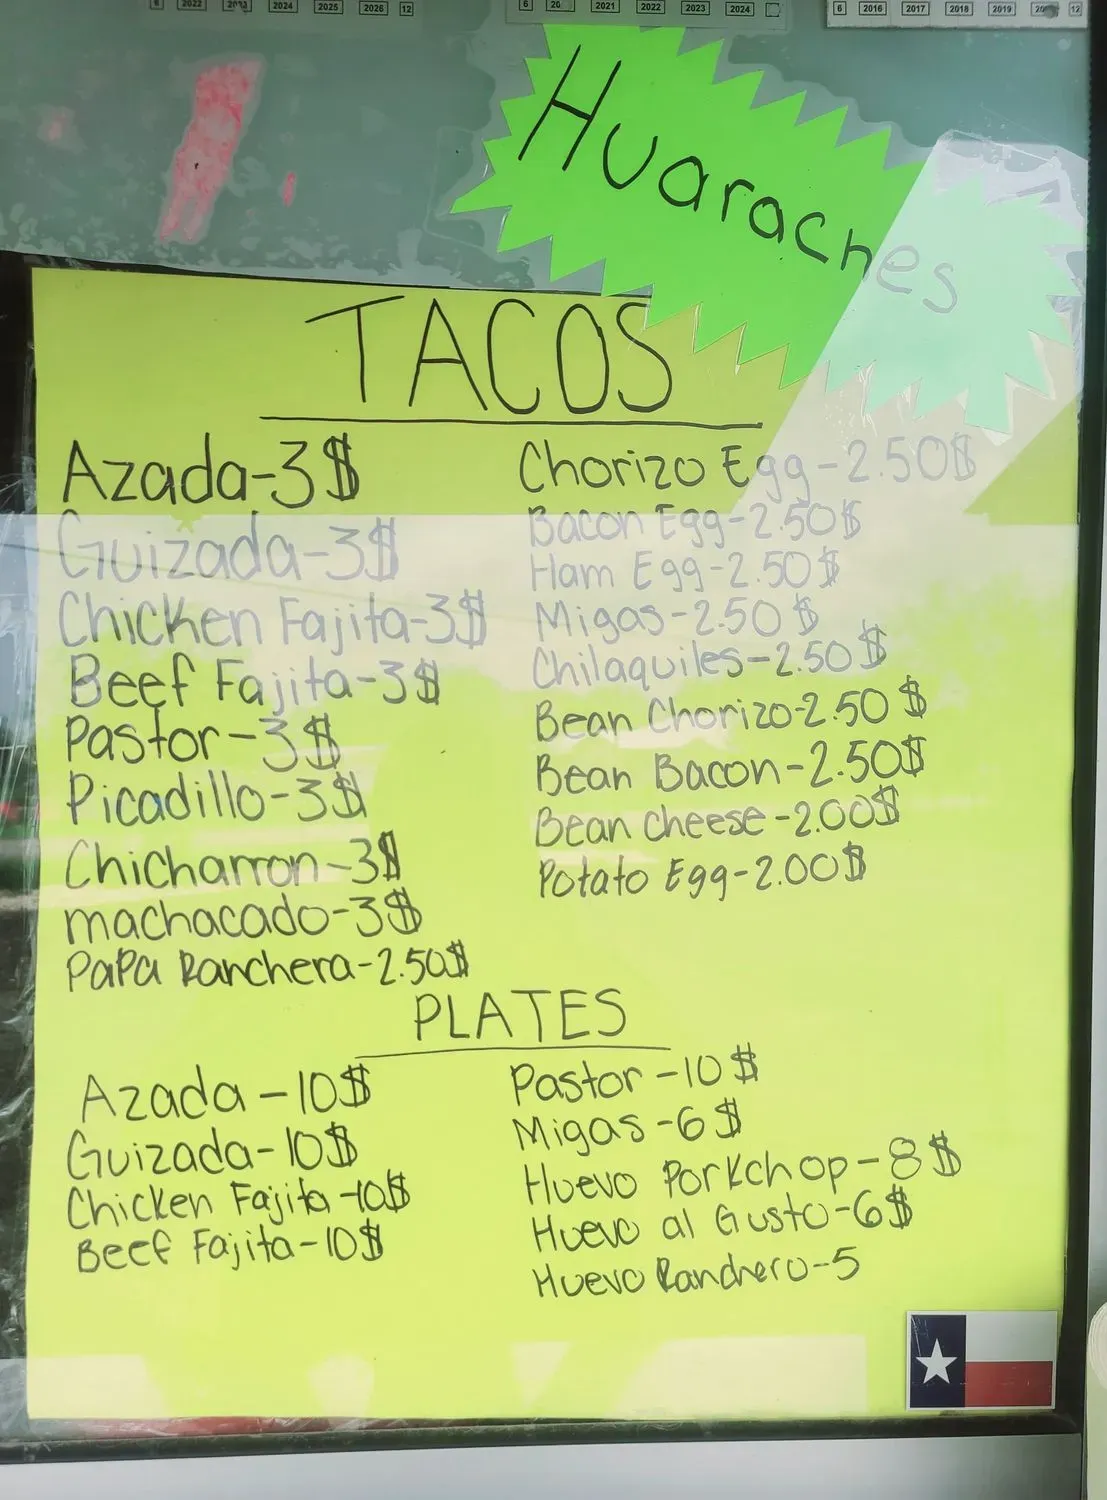 6 2022 2023 2024 2025 2026 12
6 2021 2022 2023 2024
6 2016 2017 2018 2019 12
Huaraches
TACOS
Azada-3$
Guizada-3$
Chicken Fajita-3$
Beef Fajita-3$
Pastor-3$
Picadillo-3$
Chicharron-3$
machacado-3$
PaPa Ranchera-2.50$
Chorizo Egg-2.50$
Bacon Egg-2.50$
Ham Egg-2.50$
Migas-2.50$
Chilaquiles-2.50$
Bean Chorizo-2.50$
Bean Bacon-2.50$
Bean cheese-2.00$
Potato Egg-2.00$
PLATES
Azada-10$
Guizada-10$
Chicken Fajita-10$
Beef Fajita-10$
Pastor-10$
Migas-6$
Huevo Porkchop-8$
Huevo al Gusto-6$
Huevo Ranchero-5